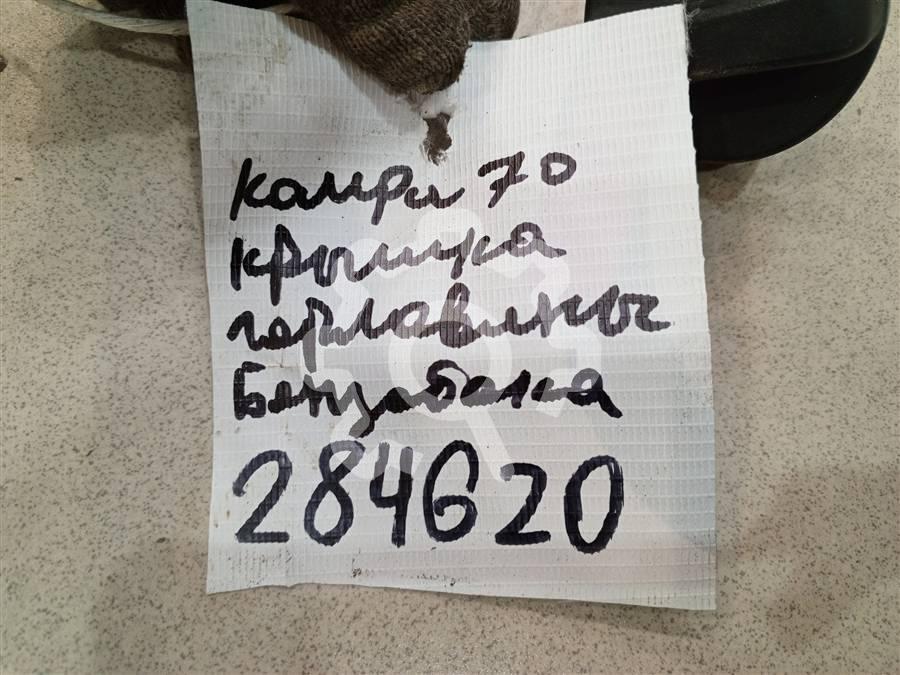 Камри 70
крышка
горлавины
Бензобака
284620